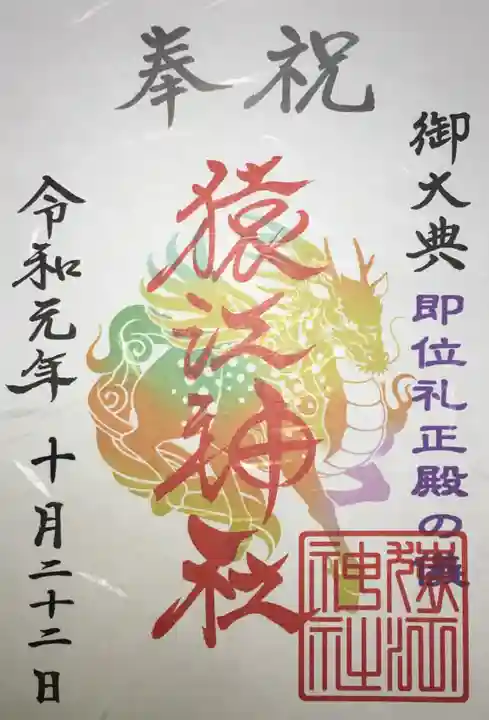 奉祝
御大典 即位礼正殿の儀
猿江神社
令和元年 十月二十二日
猿江
神社